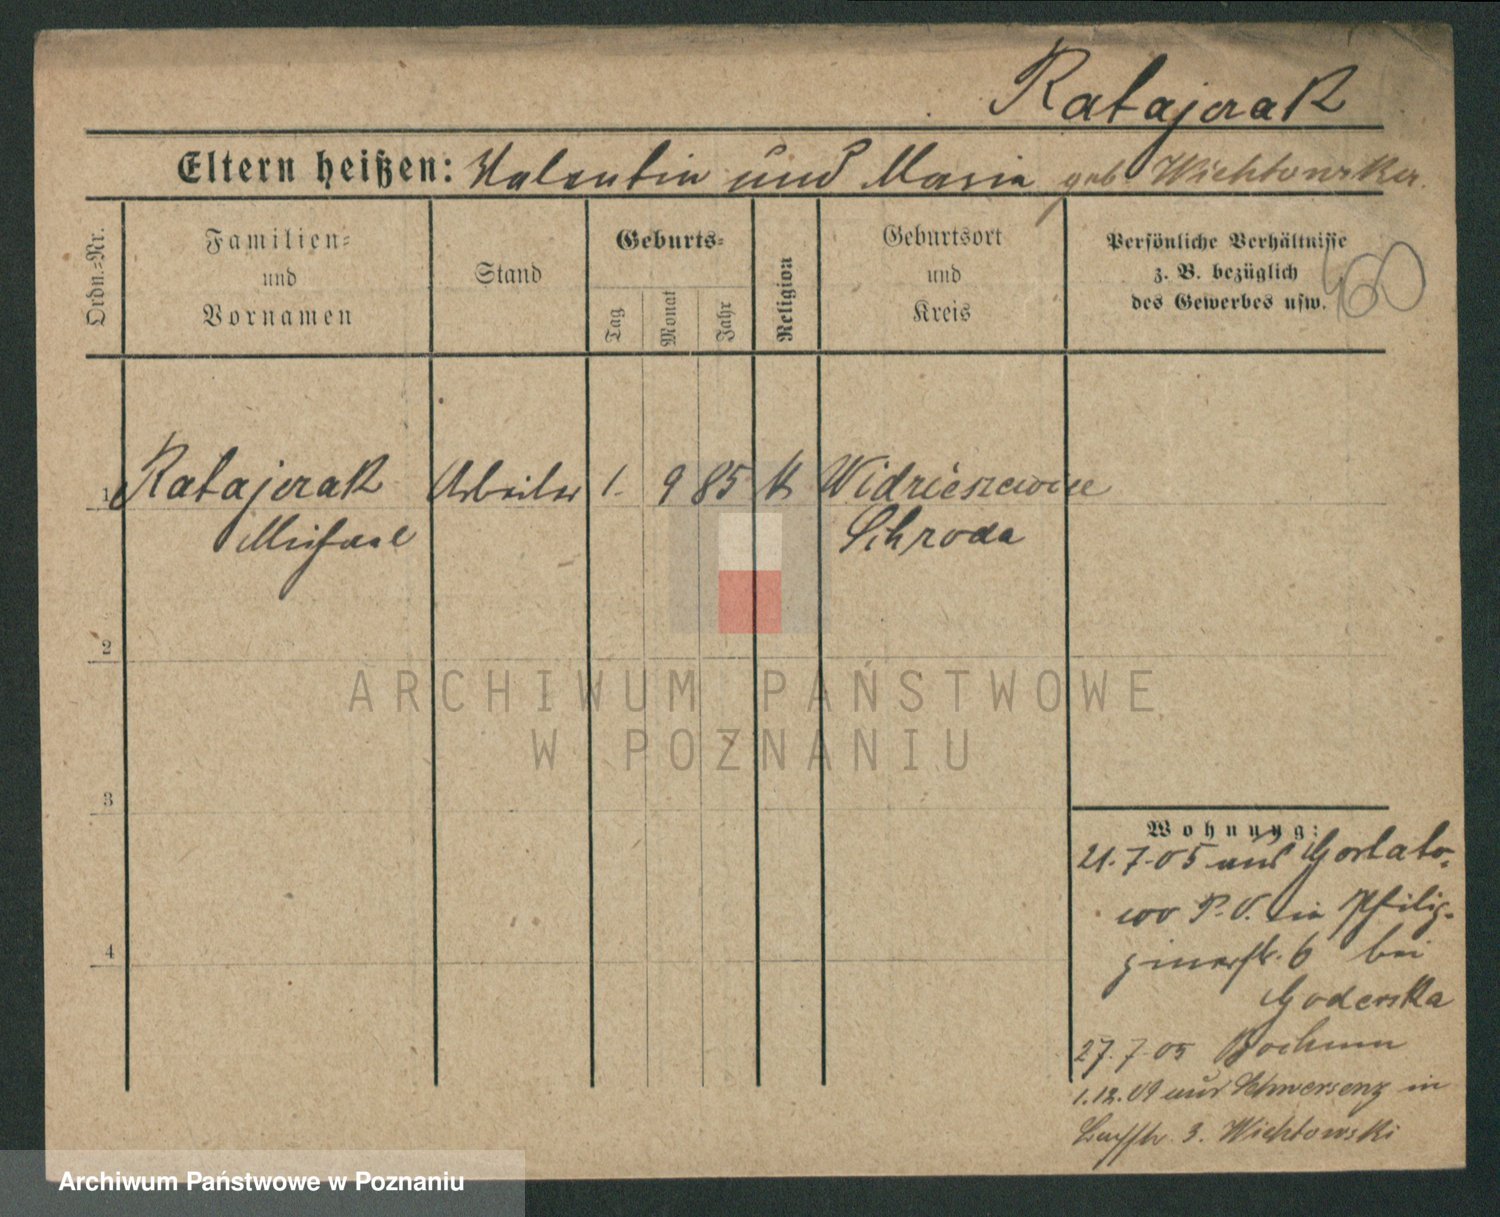 Ratajczak
Eltern heißen: Valentin und Maria geb. Wichtowska
Ordn.=Nr.
Familien=
und
Vornamen
Stand
Geburts=
Tag
Monat
Jahr
Religion
Geburtsort
und
Kreis
Persönliche Verhältnisse
z. B. bezüglich
des Gewerbes usw.
60
1 Ratajczak Arbeiter 1. 9 85 k
Michael Schroda
2
ARCHIWUM PAŃSTWOWE
W POZNANIU
3
Wohnung:
21.7.05 aus Gortato-
wo P.O. in
6 bei
Goderska
4
27.7.05 Bochum
1.12.09 aus Schwersenz in
3. Wichtowski
Archiwum Państwowe w Poznaniu